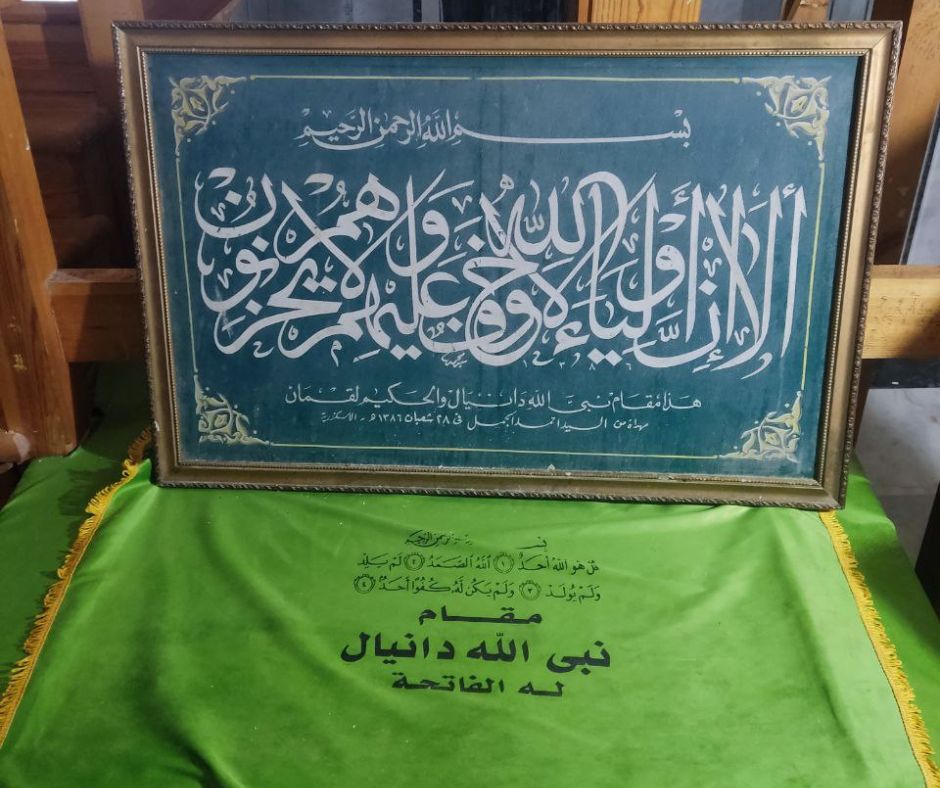 بسم الله الرحمن الرحيم
ألا إن أولياء الله لا خوف عليهم ولا هم يحزنون
١٣٨٦
هذا مقام نبى الله دانيال والحكيم لقمان
مهداة من السيد احمد الجمل فى ٢٨ شعبان ١٣٨٦ هـ - الاسكندرية
بسم الله الرحمن الرحيم
قُلْ هُوَ اللهُ أَحَدٌ ١ اللهُ الصَّمَدُ ٢ لَمْ يَلِدْ
وَلَمْ يُولَدْ ٣ وَلَمْ يَكُنْ لَهُ كُفُوًا أَحَدٌ ٤
مقام
نبى الله دانيال
له الفاتحة